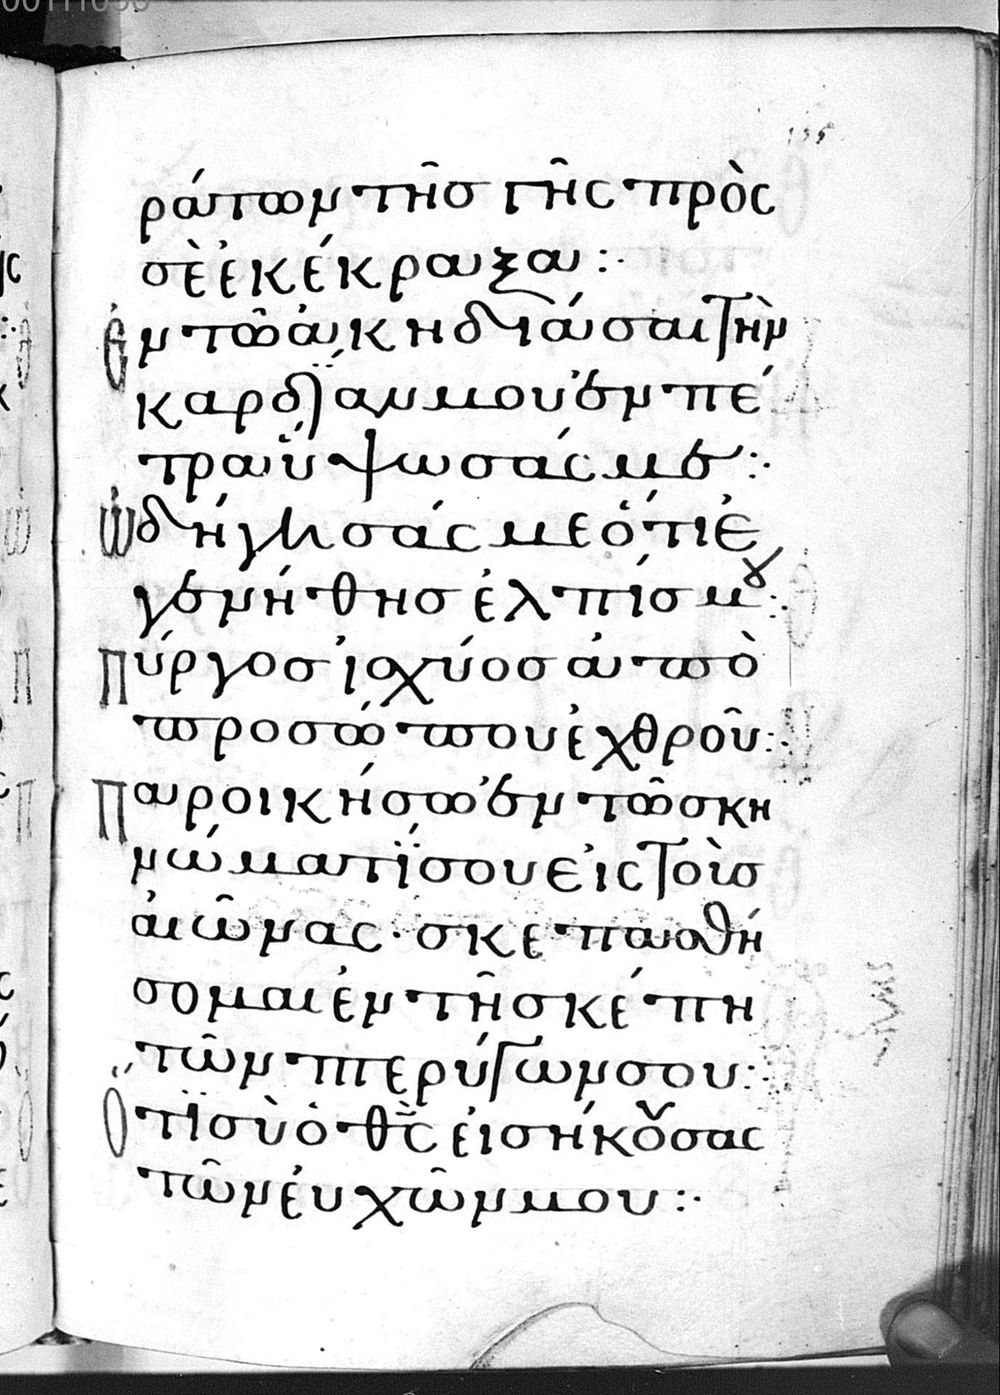 135
ράτων τῆσ γῆς πρὸς
σὲ ἐκέκραξα :·
Ἐν τῶ ἀκηδιάσαι τὴν
καρδίαν μου ἐν πέ
τρα ὕψωσάς με :·
Ὡδήγησάς με ὅτι ἐ
γενήθησ ἐλπίσ μου :·
Πύργοσ ἰσχύοσ ἀπὸ
προσώπου ἐχθροῦ :·
Παροικήσω ἐν τῶ σκη
νώματί σου εἰς τοὺσ
αἰῶνας · σκεπασθή
σομαι ἐν τῆ σκέπη
τῶν πτερύγων σου :·
Ὅτι σὺ ὁ θς εἰσήκουσας
τῶν ἐυχῶν μου :·